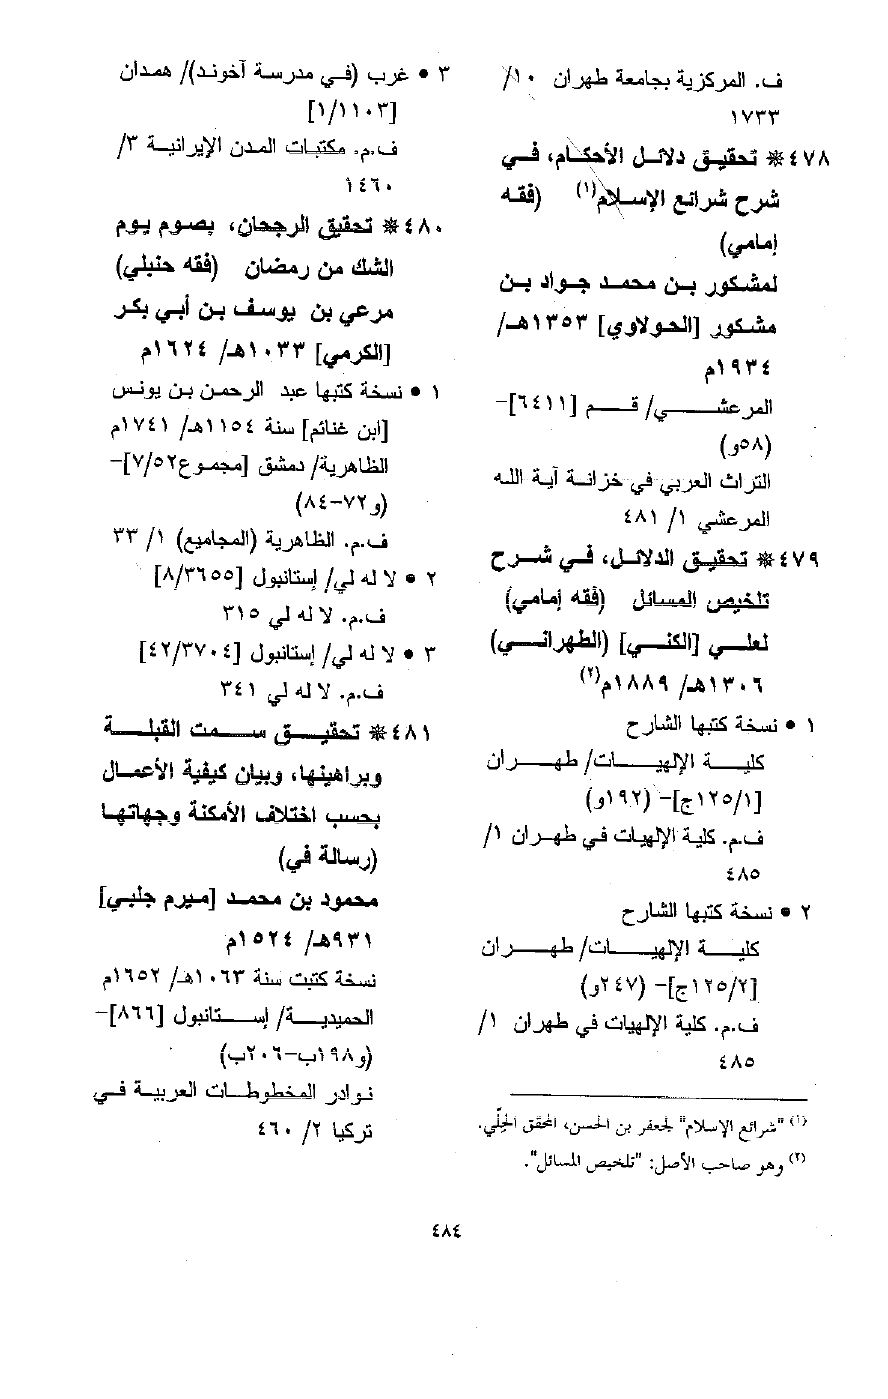 ف. المركزية بجامعة طهران ١٠/
١٧٣٣
٤٧٨ * تحقيق دلائل الأحكام، في
شرح شرائع الإسلام(١) (فقه
إمامي)
لمشكور بن محمد جواد بن
مشكور [الحولاوي] ١٣٥٣هـ/
١٩٣٤م
المرعشي/ قم [٦٤١١]-
(٥٨و)
التراث العربي في خزانة آية الله
المرعشي ١/ ٤٨١
٤٧٩ * تحقيق الدلائل، في شرح
تلخيص المسائل (فقه إمامي)
لعلي [الكني] (الطهراني)
١٣٠٦هـ/ ١٨٨٩م(٢)
١ • نسخة كتبها الشارح
كلية الإلهيات/ طهران
[١٢٥/١ج]- (١٩٢و)
ف.م. كلية الإلهيات في طهران ١/
٤٨٥
٢ • نسخة كتبها الشارح
كلية الإلهيات/ طهران
[١٢٥/٢ج]- (٢٤٧و)
ف.م. كلية الإلهيات في طهران ١/
٤٨٥
(١) "شرائع الإسلام" لجعفر بن الحسن، المحقق الحِلّي.
(٢) وهو صاحب الأصل: "تلخيص المسائل".
٣ • غرب (في مدرسة آخوند)/ همدان
[١/١١٠٣]
ف.م. مكتبات المدن الإيرانية ٣/
١٤٦٠
٤٨٠ * تحقيق الرجحان، بصوم يوم
الشك من رمضان (فقه حنبلي)
مرعي بن يوسف بن أبي بكر
[الكرمي] ١٠٣٣هـ/ ١٦٢٤م
١ • نسخة كتبها عبد الرحمن بن يونس
[ابن غنائم] سنة ١١٥٤هـ/ ١٧٤١م
الظاهرية/ دمشق [مجموع٧/٥٢]-
(و٧٢-٨٤)
ف.م. الظاهرية (المجاميع) ١/ ٣٣
٢ • لا له لي/ إستانبول [٨/٣٦٥٥]
ف.م. لا له لي ٣١٥
٣ • لا له لي/ إستانبول [٤٢/٣٧٠٤]
ف.م. لا له لي ٣٤١
٤٨١ * تحقيق سمت القبلة
وبراهينها، وبيان كيفية الأعمال
بحسب اختلاف الأمكنة وجهاتها
(رسالة في)
محمود بن محمد [ميرم جلبي]
٩٣١هـ/ ١٥٢٤م
نسخة كتبت سنة ١٠٦٣هـ/ ١٦٥٢م
الحميدية/ إستانبول [٨٦٦]-
(و١٩٨ب-٢٠٦ب)
نوادر المخطوطات العربية في
تركيا ٢/ ٤٦٠
٤٨٤